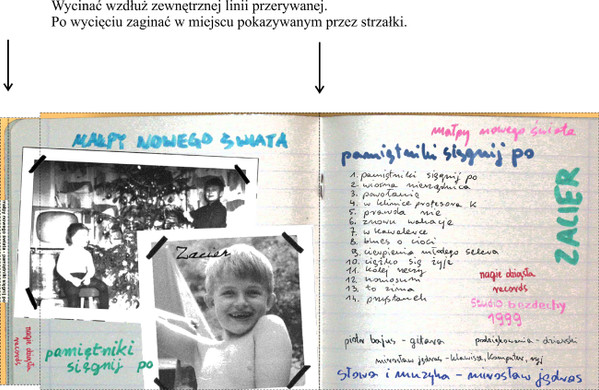 Wycinać wzdłuż zewnętrznej linii przerywanej.
Po wycięciu zaginać w miejscu pokazywanym przez strzałki.
MAŁPY NOWEGO ŚWIATA
Zacier
pamiętniki
sięgnij po
nagie dziąsła
records
małpy nowego świata
pamiętniki sięgnij po
1. pamiętniki sięgnij po
2. wiosna nierządnica
3. powołanie
4. w klinice profesora K
5. prawda nie
6. znowu wakacje
7. w kawalerce
8. blues o cioci
9. cierpienia młodego selera
10. ciężko się żyje
11. kolej rzeczy
12. koniosum
13. to zima
14. przystanek
ZACIER
nagie dziąsła
records
studio bezdechy
1999
piotr bajus - gitara
podziękowania - dziarski
mirosław jędras - klawisze, komputer, ryj
słowa i muzyka - mirosław jędras